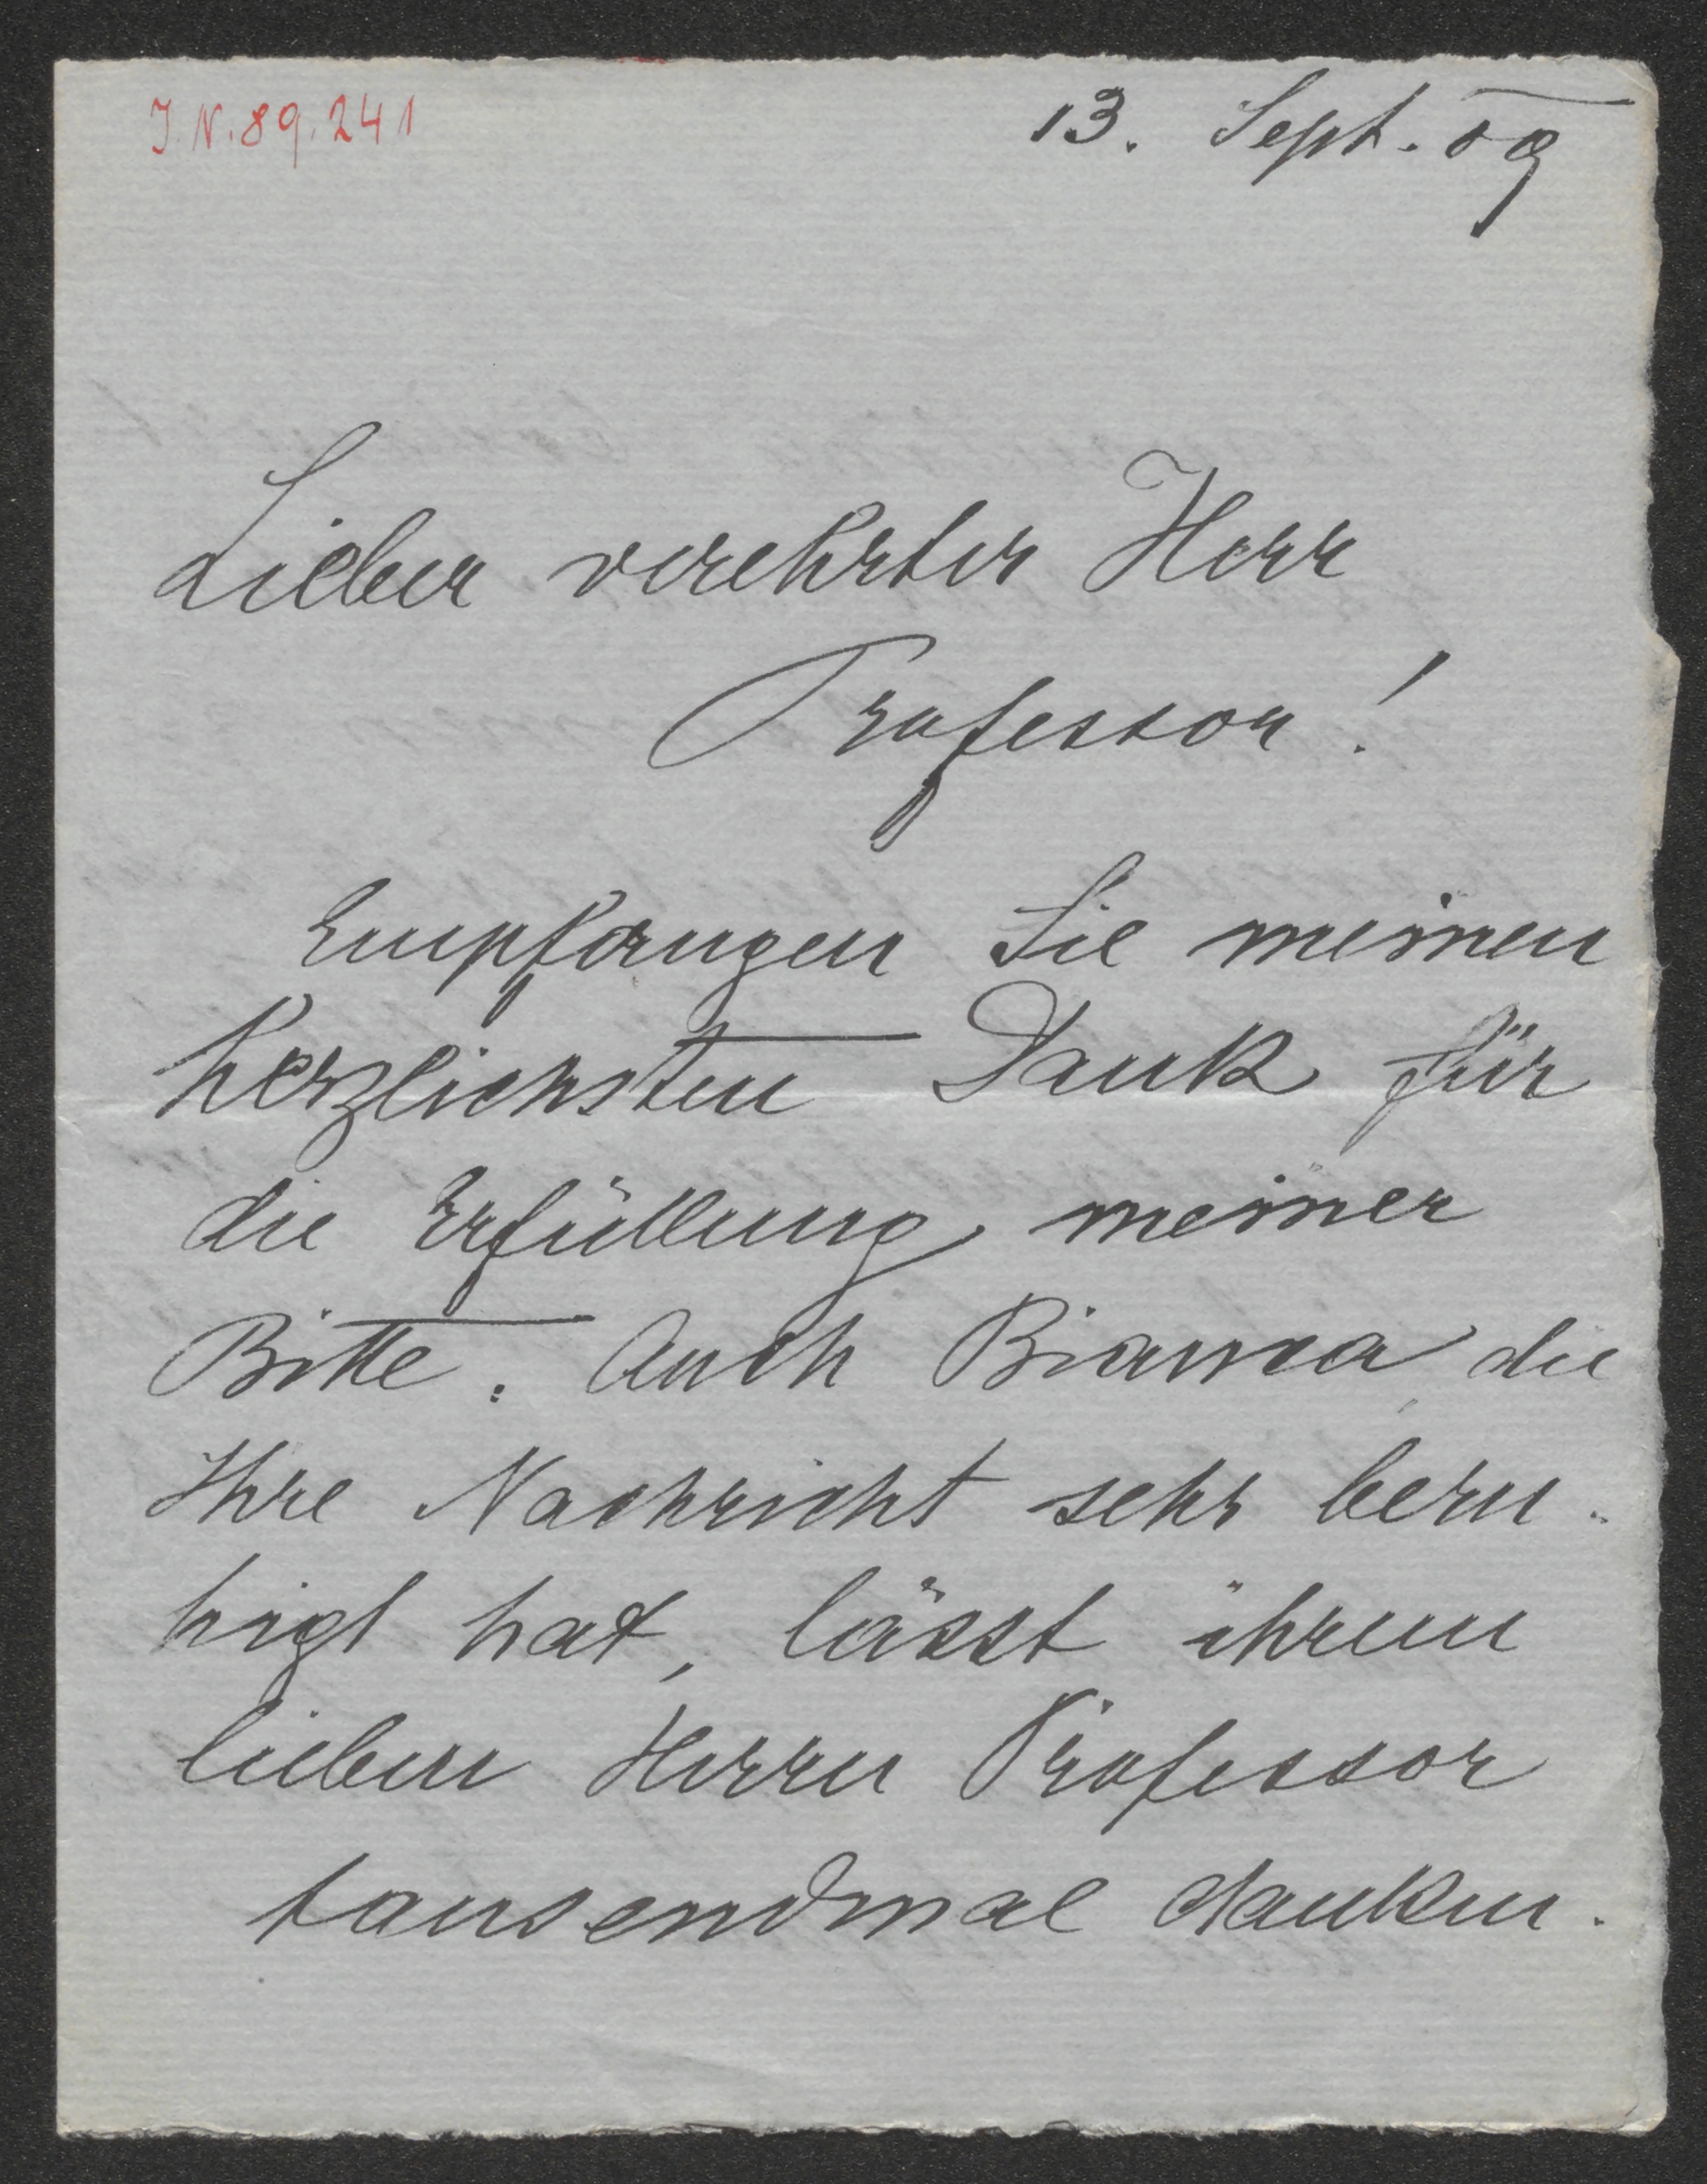 J. N. 89.241
13. Sept. 09
Lieber verehrter Herr
Professor!
Empfangen Sie meinen
herzlichsten Dank für
die Erfüllung meiner
Bitte. Auch Bianca, die
Ihre Nachricht sehr beru-
higt hat, lässt ihrem
lieben Herrn Professor
tausendmal danken.